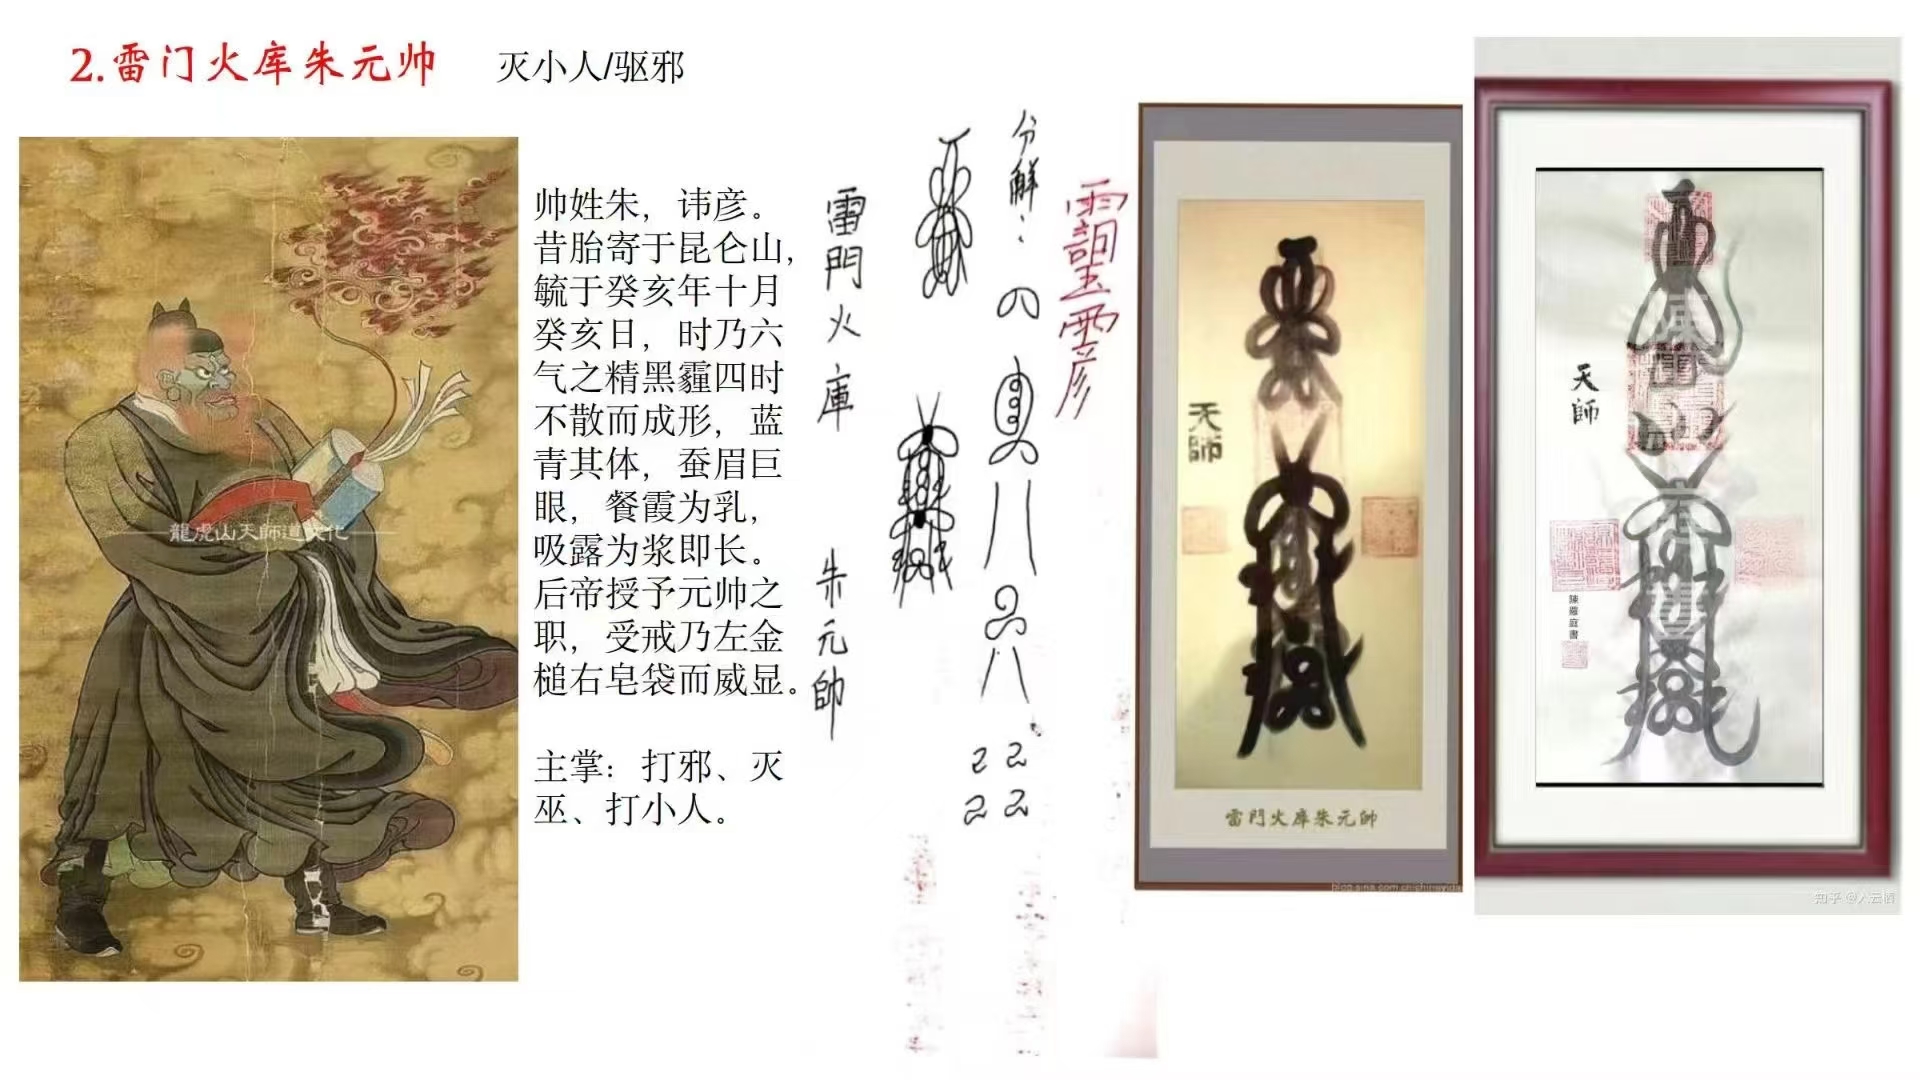 2.雷门火库朱元帅
灭小人/驱邪
龍虎山天師道文化
帅姓朱，讳彦。
昔胎寄于昆仑山，
毓于癸亥年十月
癸亥日，时乃六
气之精黑霾四时
不散而成形，蓝
青其体，蚕眉巨
眼，餐霞为乳，
吸露为浆即长。
后帝授予元帅之
职，受戒乃左金
槌右皂袋而威显。
主掌：打邪、灭
巫、打小人。
雷門火庫
朱元帥
分解：
天師
雷門火库朱元帥
天師
陳羅庭書
知乎 @八云栖